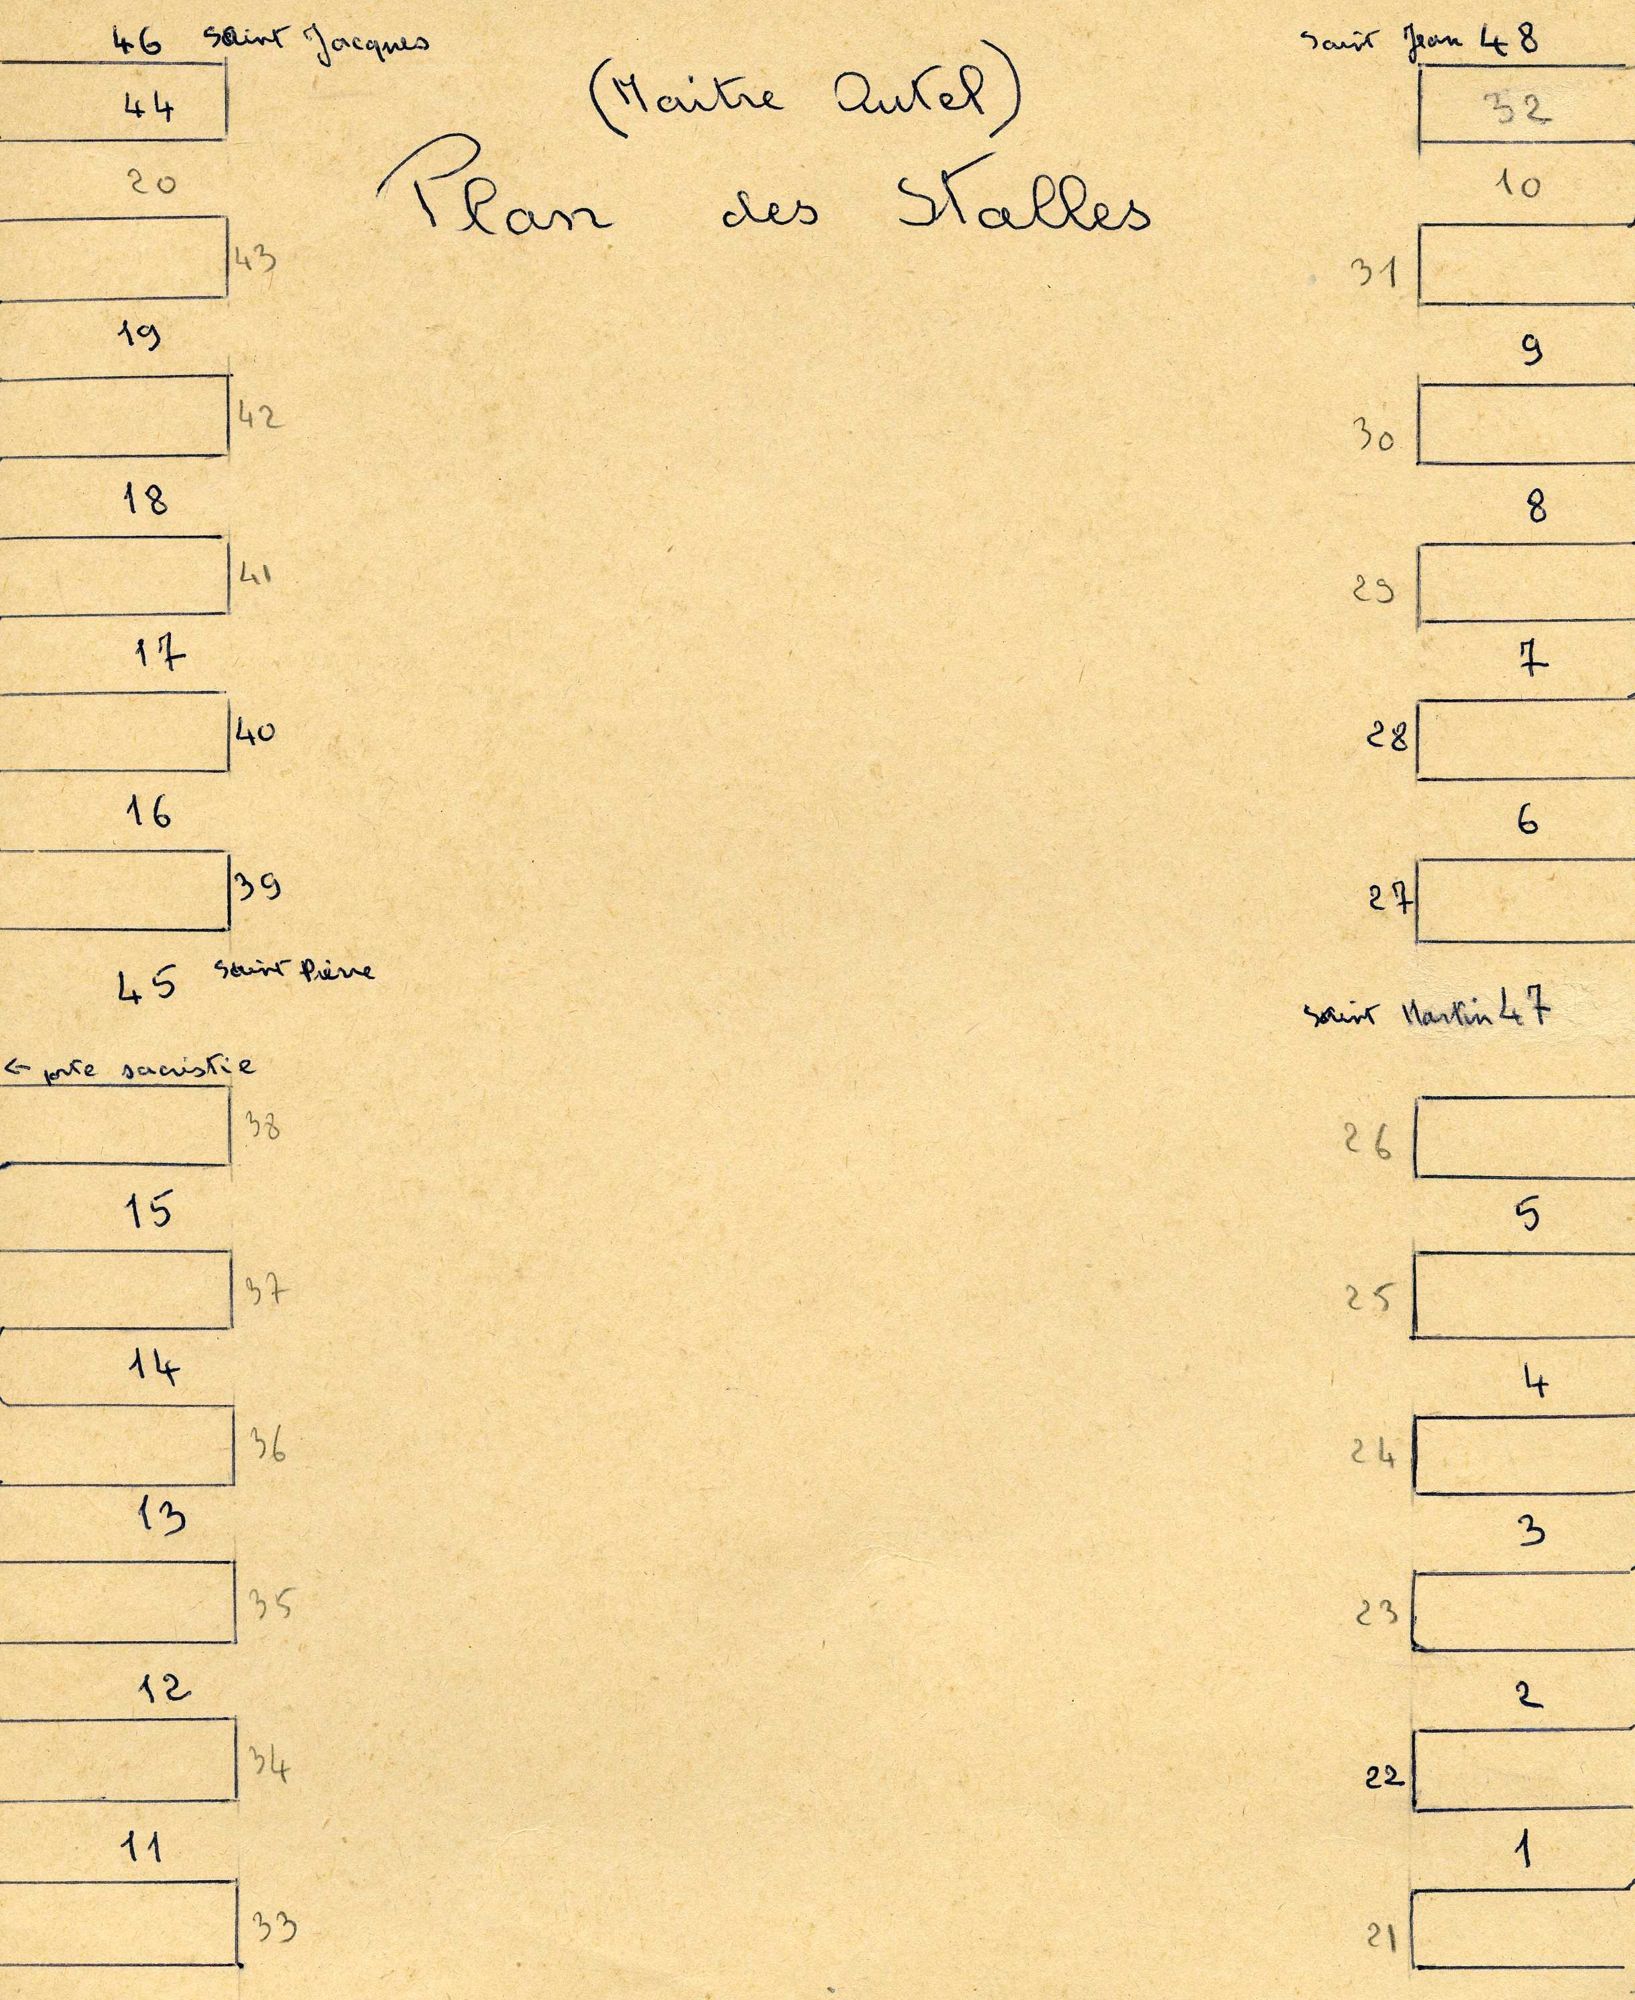 46 Saint Jacques
(Maitre Autel)
Saint Jean 48
44
32
20
Plan des Stalles
10
43
31
19
9
42
30
18
8
41
29
17
7
40
28
16
6
39
27
45 Saint Pierre
Saint Martin 47
← porte sacristie
38
26
15
5
37
25
14
4
36
24
13
3
35
23
12
2
34
22
11
1
33
21